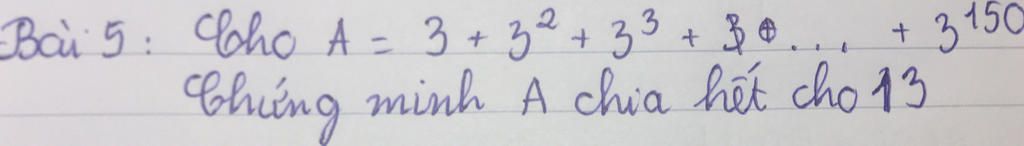 Bài 5 : Cho A = 3 + 3² + 3³ + ... + 3¹⁵⁰
Chứng minh A chia hết cho 13